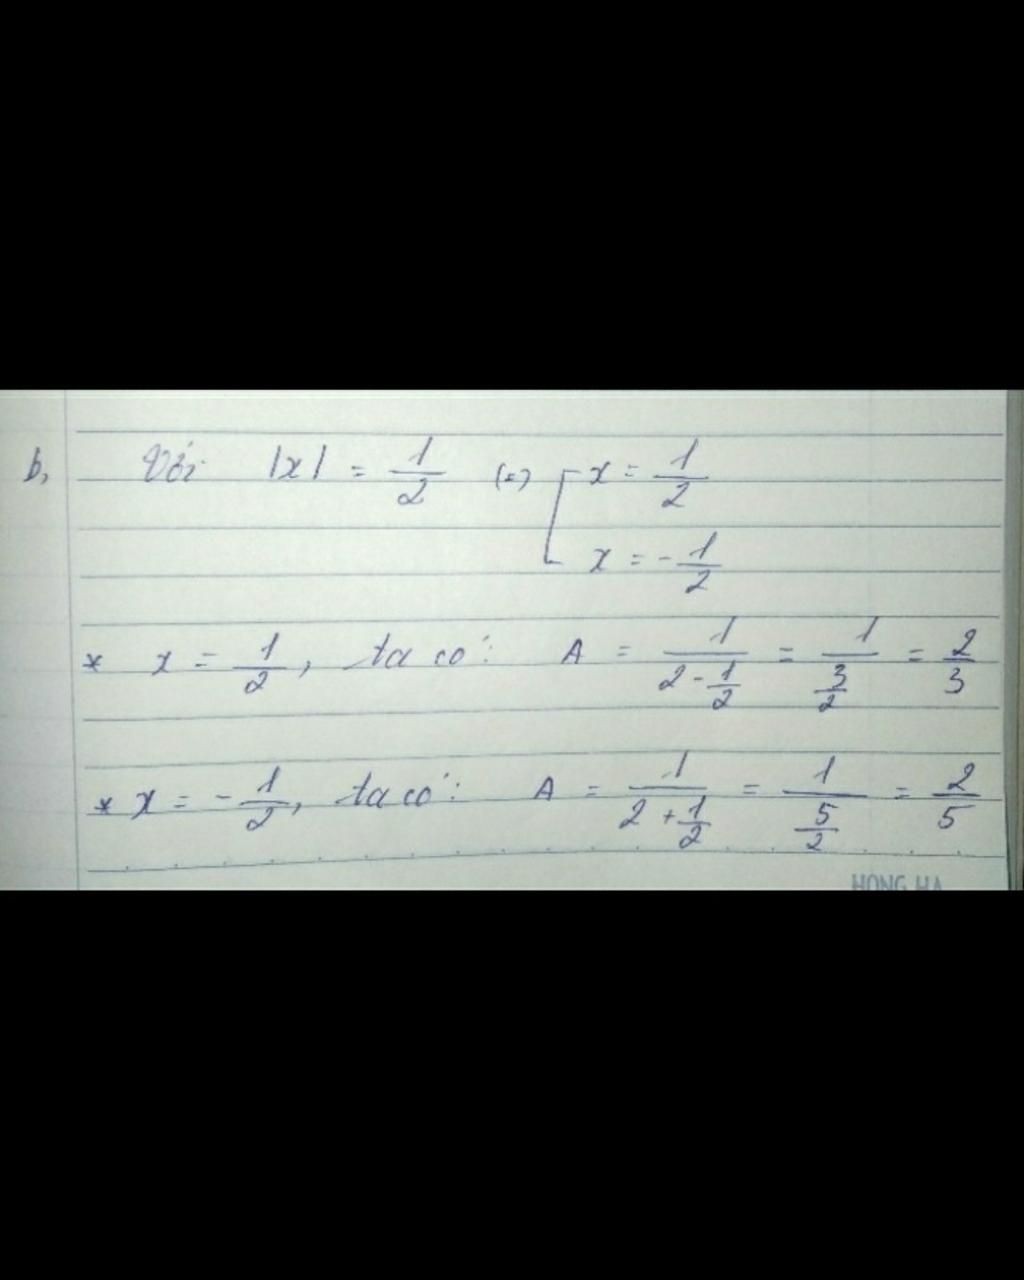 b, Với |x| = 1/2 (=) [ x = 1/2
x = -1/2
* x = 1/2, ta có: A = 1/(2 - 1/2) = 1/(3/2) = 2/3
* x = -1/2, ta có: A = 1/(2 + 1/2) = 1/(5/2) = 2/5
HONG HA